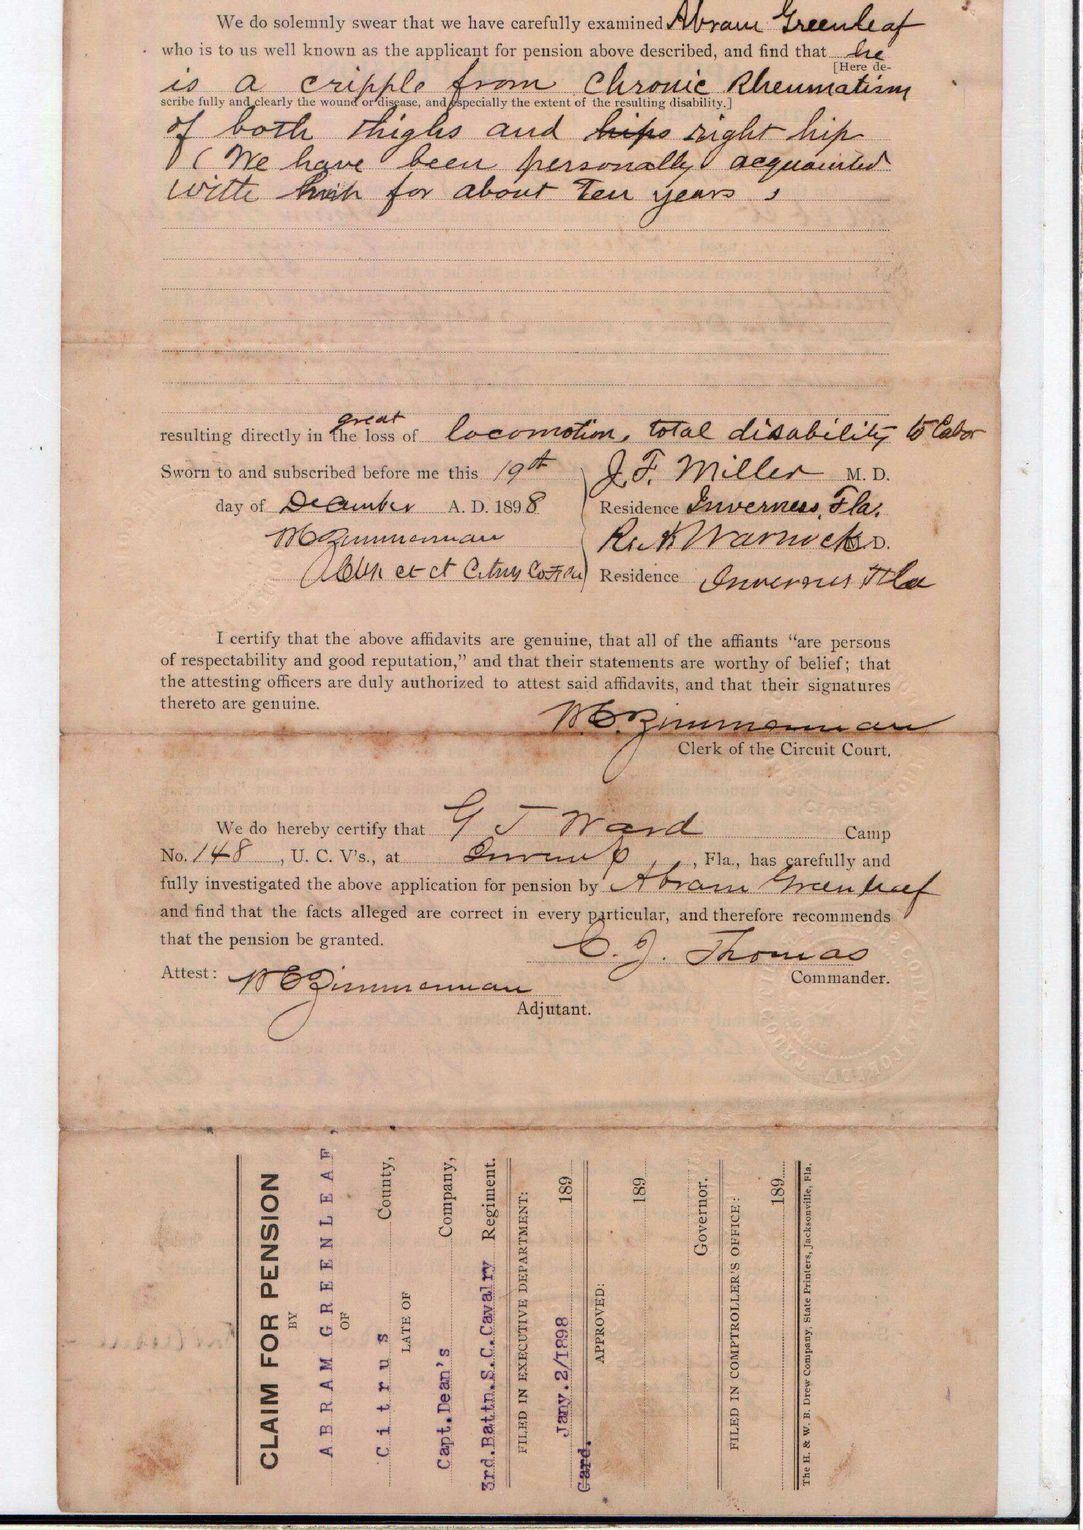 We do solemnly swear that we have carefully examined Abram Greenleaf
who is to us well known as the applicant for pension above described, and find that he
[Here de-
is a cripple from Chronic Rheumatism
scribe fully and clearly the wound or disease, and especially the extent of the resulting disability.]
of both thighs and hips right hip
(We have been personally acquainted
with him for about Ten years
great
resulting directly in the loss of locomotion, total disability to labor
Sworn to and subscribed before me this 19th
J. F. Miller M. D.
day of December A. D. 1898
Residence Inverness, Fla.
W C Zimmerman
Warnock M. D.
Clk ct ct Citrus Co Fla
Residence Inverness Fla
I certify that the above affidavits are genuine, that all of the affiants "are persons
of respectability and good reputation," and that their statements are worthy of belief; that
the attesting officers are duly authorized to attest said affidavits, and that their signatures
thereto are genuine.
W. C. Zimmerman
Clerk of the Circuit Court.
We do hereby certify that G T Ward Camp
No. 148, U. C. V's., at , Fla., has carefully and
fully investigated the above application for pension by Abram Greenleaf
and find that the facts alleged are correct in every particular, and therefore recommends
that the pension be granted.
C. J. Thomas
Commander.
Attest: W C Zimmerman
Adjutant.
CLAIM FOR PENSION
BY
ABRAM GREENLEAF,
OF
Citrus County,
LATE OF
Capt.Dean's Company,
3rd.Battn.S.C.Cavalry Regiment.
FILED IN EXECUTIVE DEPARTMENT:
Jany.2/1898 189
Card.
APPROVED:
189
Governor.
FILED IN COMPTROLLER'S OFFICE:
189
The H. & W. B. Drew Company, State Printers, Jacksonville, Fla.